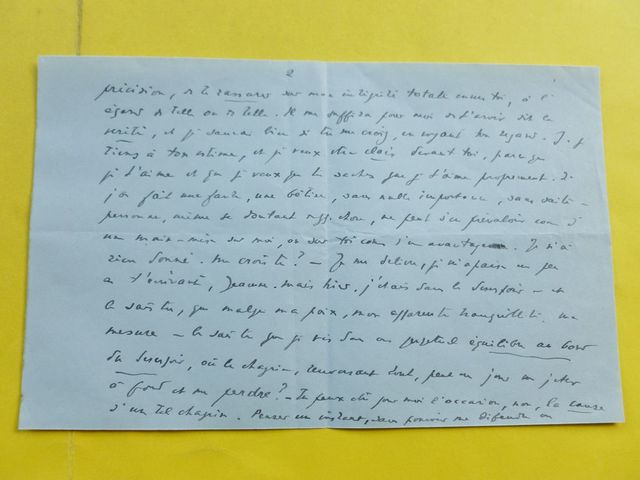 2
précision, de te rassurer sur mon intégrité totale envers toi, à l'
égard de telle ou de telle. Il me suffira pour moi de t'avoir dit la
vérité, et je saurai bien si tu me crois, en voyant ton regard. J
tiens à ton estime, et je veux être clair devant toi, parce que
je t'aime et que je veux que tu saches que je t'aime proprement. Si
j'ai fait une faute, une bêtise, sans nulle importance, sans
personne, même se doutant chose, ne peut s'en prévaloir comme d'
une main-mise sur moi, ou sur toi comme d'un avantage. Je n'ai
rien donné. Me crois-tu? – Je me délivre, je m'apaise un peu
en t'écrivant, Jeanne. Mais hier, j'étais dans le désespoir – et
le sais-tu, que malgré ma paix, mon apparente tranquillité, ma
mesure – le sais-tu que je vis dans un perpétuel équilibre au bord
du désespoir, où le chagrin, renversant tout, peut un jour me jeter
à fond et me perdre? – Tu peux être pour moi l'occasion, non, la cause
d'un tel chagrin. Penser un instant, sans pouvoir me défendre